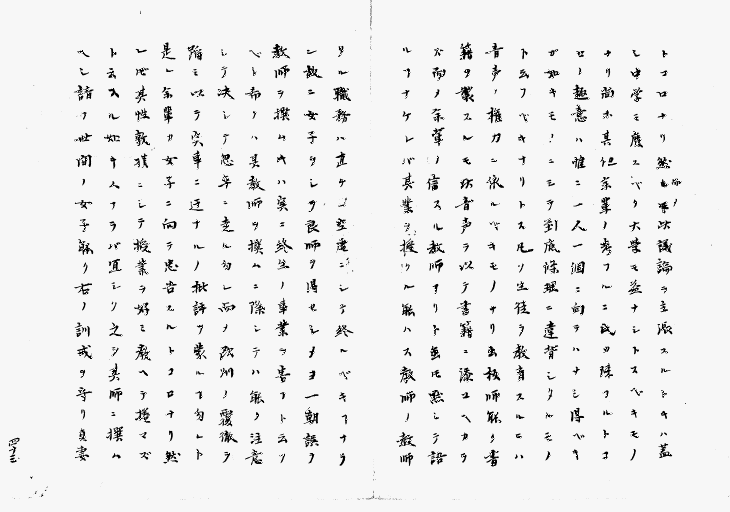 トコロナリ然シ此議論ヲ主張スルトキハ蓋
シ中学モ廃スベク大学モ益ナシトスベキモノ
ナリ尚ホ其他余輩ノ考フルニ或ハ殊フルトコ
ロノ趣意ハ惟ニ一人一個ニ向ヲハナシ得ベキ
ガ如キモノニシテ到底条理ニ違背シタルモノ
ト云フベキナリトス凡ソ生徒ヲ教育スルニハ
音声ノ権力ニ依ルベキモノナリ無校師解ク書
籍ヲ襲スルモ於音声ヲ以テ書籍ニ添ユベカラ
ズ而ノ余輩ノ信スル教師アリト虽モ黙シテ語
ルコナケレバ其業ヲ授クル能ハス教師ノ教師
タル職務ハ直ケニ空虚ニシテ終ルベキコナラ
ン故ニ女子ヲシテ良師ヲ得セシメヨ一朝誤ヲ
教師ヲ撰ムキハ実ニ終生ノ事業ヲ害フト云フ
ベト希クハ其教師ヲ撰ムニ際シテハ能ク注意
シテ決シテ思卒ニ走ル勿レ而メ政州ノ覆徹ヲ
踏ミ以テ突事ニ迂ナルノ批評ヲ蒙ルコ勿レト
是レ余輩カ女子ニ向テ忠告スルトコロナリ然
レ𪜈其性敦撲ニシテ授業ヲ好ミ教ヘテ撓マズ
ト云スル如キ人アラバ宜シク之ヲ其師ニ撰ム
ベシ請フ世間ノ女子能ク右ノ訓戒ヲ守リ貞妻
四十三